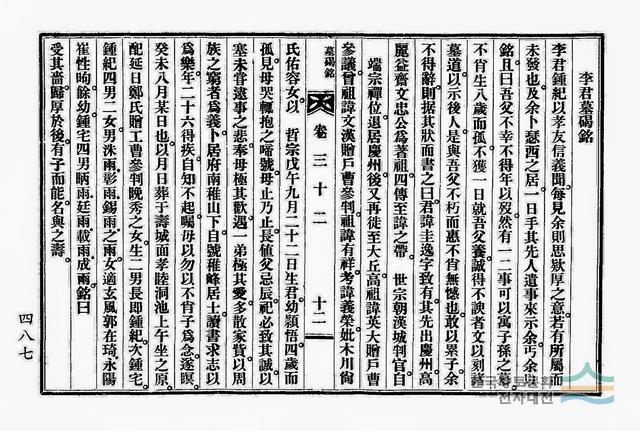 李君墓碣銘
李君鍾紀以孝友信義聞每見余則思欵厚之意若有所屬而
未發也及余卜瑟西之居一日手其先人遺事來示余丐余以
銘且曰吾父不幸不得年以歿然有一二事可以寓子孫之慕
不肖生八歲而孤不獲一日就吾父養誠得不諛者文以刻諸
墓道以示後人是與吾父不朽而惠不肖無憾也敢以累子余
不得辭則据其狀而書之曰君諱圭逸字致有其先出慶州高
麗益齋文忠公爲著祖四傳至諱之帶 世宗朝漢城判官自
端宗禪位退居慶州後又再徙至大丘高祖諱英大贈戶曹
參議曾祖諱文漢贈戶曹參判祖諱有祥考諱義榮妣木川尙
墓碣銘
卷三十二
十二
氏佑容女以 哲宗戊午九月二十二日生君幼頴悟四歲而
孤見母哭輒抱之啼號母止乃止長値父忌辰祀必致其誠以
塞未甞逮事之悲奉母極其歡遇 弟極其愛多散家貲以周
族之窮者爲義卜居府南稚山下自號稚峰居士讀書求志以
爲樂年二十六得疾自知不起囑母以勿以不肖子爲念遂暝
癸未八月某日也以月日葬于壽城面孝睦洞池上午坐之原
配延日鄭氏贈工曹參判晩秀之女生二男長卽鍾紀次鍾宅
鍾紀四男二女男洙雨彰雨錫雨之雨女適玄風郭在琦永陽
崔性昫餘幼鍾宅四男昞雨廷雨載雨成雨銘曰
受其嗇歸厚於後有子而能名與之壽
四八七
전자대전